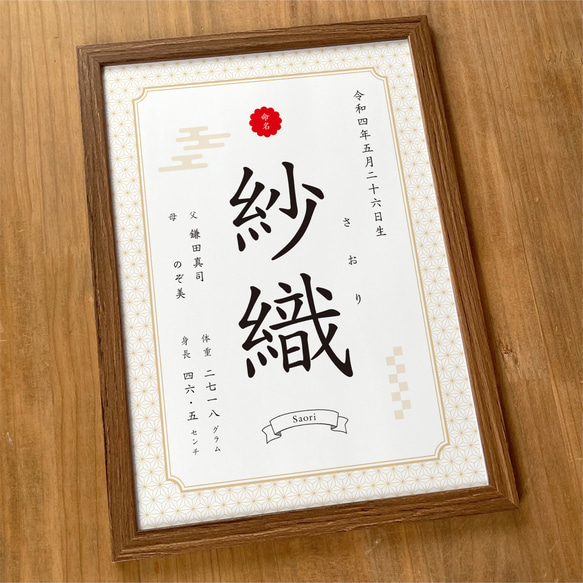 令和四年五月二十六日生
命名
さおり
紗織
父 鎌田真司
母 のぞ美
体重 二七一八グラム
身長 四六・五センチ
Saori